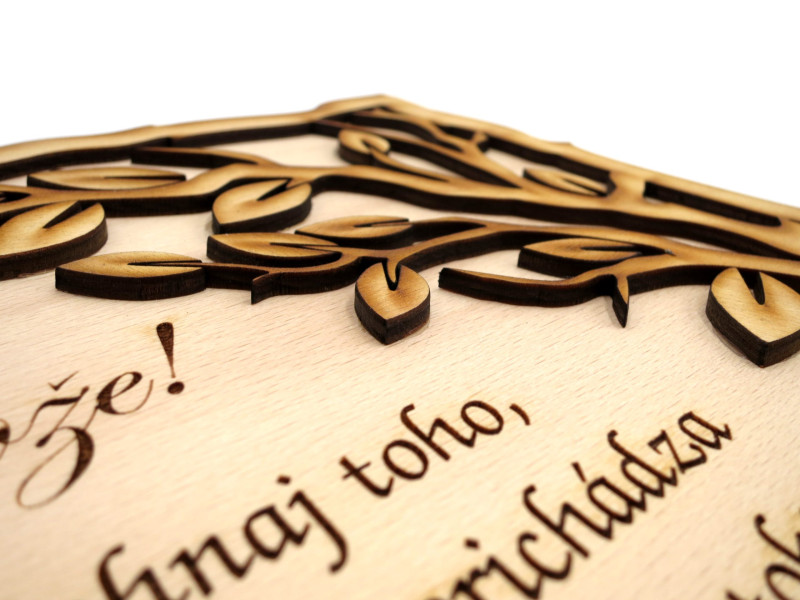 že!
hnaj toho,
richádza
tok